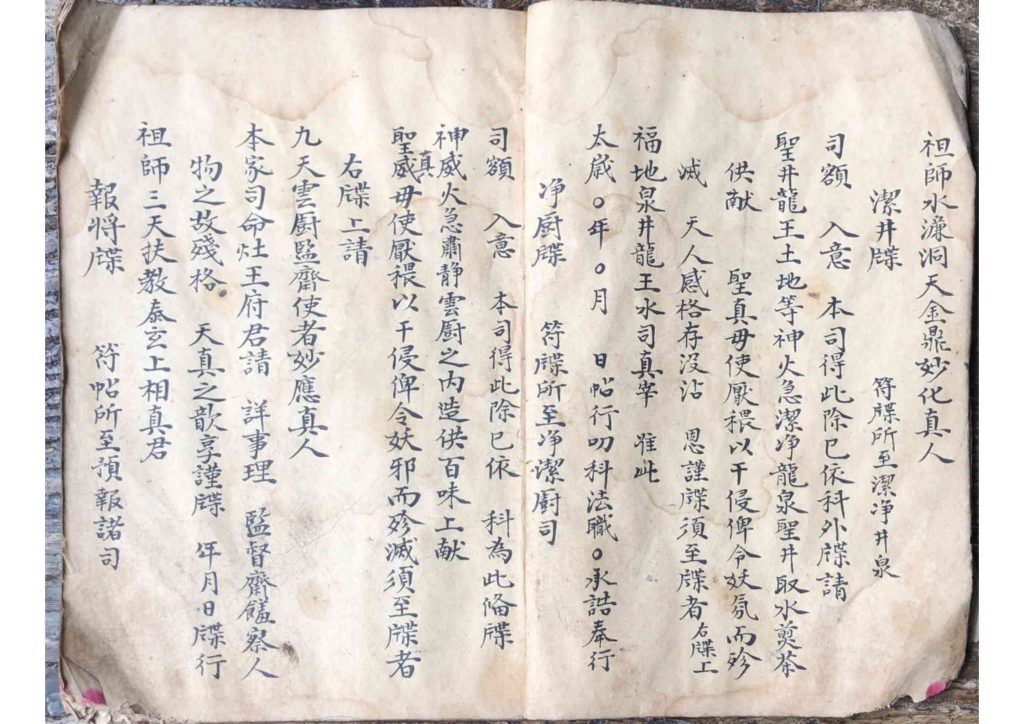 祖師水濂洞天金鼎妙化真人
潔井牒　符牒所至潔净井泉
司額　入意　本司得此除已依科外牒請
聖井龍王土地等神火急潔净龍泉聖井取水煎茶
供献　聖真毋使厭穢以干侵俾令妖氛而殄
滅　天人感格存没沾　恩謹牒須至牒者　右牒上
福地泉井龍王水司真宰　准此
太歲○年○月　日帖行叨科法職○承誥奉行
净厨牒　符牒所至净潔厨司
司額　入意　本司得此除已依　科為此俻牒
神威火急肅静雲厨之内造供百味上献
聖真威毋使厭穢以干侵俾令妖邪而殄滅須至牒者
右牒上請
九天雲厨監齋使者妙應真人
本家司命灶王府君請　詳事理　監督齋饈察人
物之故殘格　天真之歆享謹牒　年月日牒行
祖師三天扶教泰玄上相真君
報將牒　符帖所至預報諸司